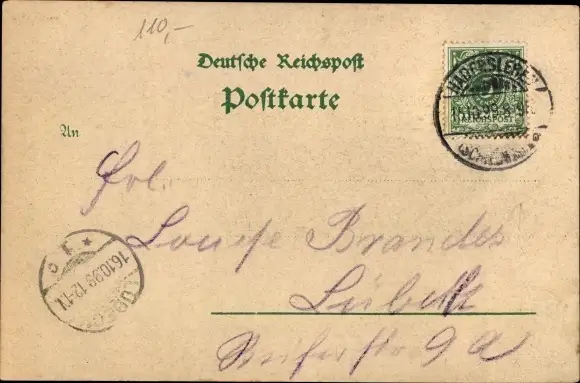 110,-
Deutsche Reichspost
Postkarte
HADERSLEBEN
REICHSPOST
An
Frl.
Louise Brandes
Lübeck
9 a
16.10.99.12-1N.
LÜBECK